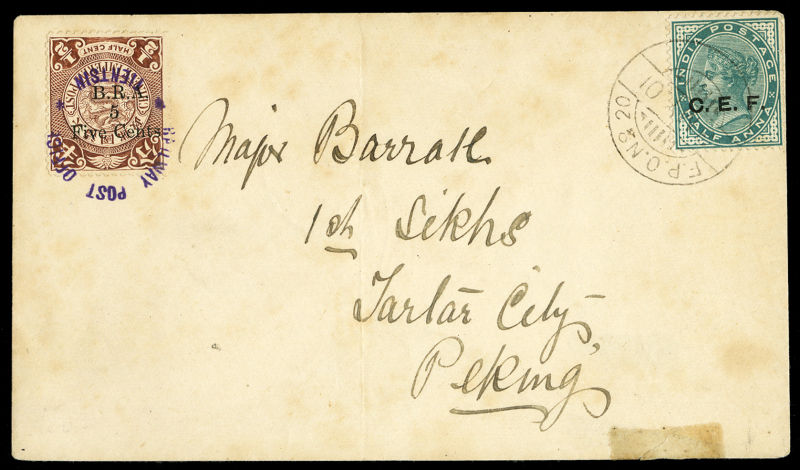 ½ HALF CENT ½
B.R.A.
5
Five Cents
RAILWAY POST OFFICE
* TIENTSIN *
INDIA POSTAGE
C. E. F.
HALF ANNA
F.P.O. Nº 20
Major Barratt
1st Sikhs
Tartar City,
Peking